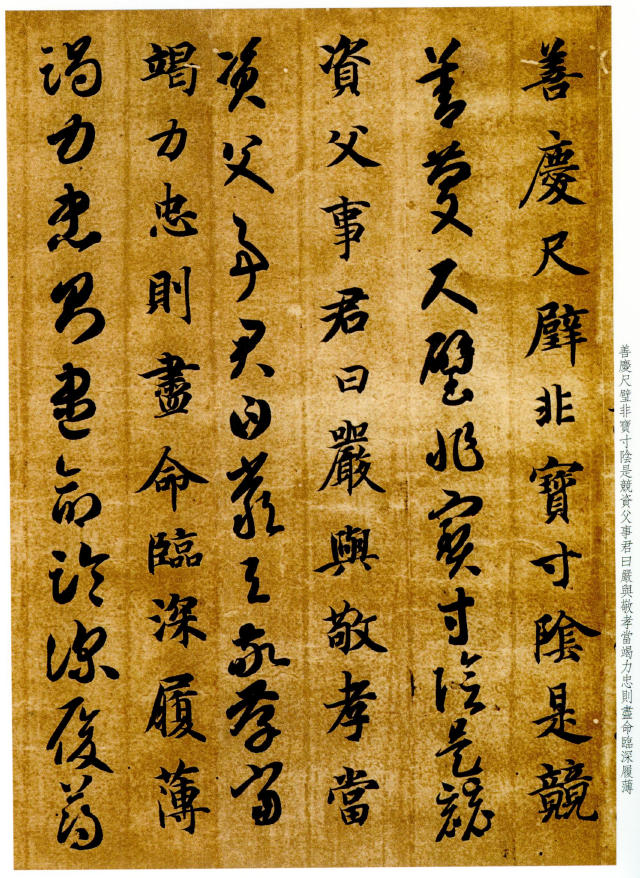 善慶尺璧非寶寸陰是競
善慶尺璧非寶寸陰是競
資父事君曰嚴與敬孝當
資父事君曰嚴與敬孝當
竭力忠則盡命臨深履薄
竭力忠則盡命臨深履薄
善慶尺璧非寶寸陰是競資父事君曰嚴與敬孝當竭力忠則盡命臨深履薄